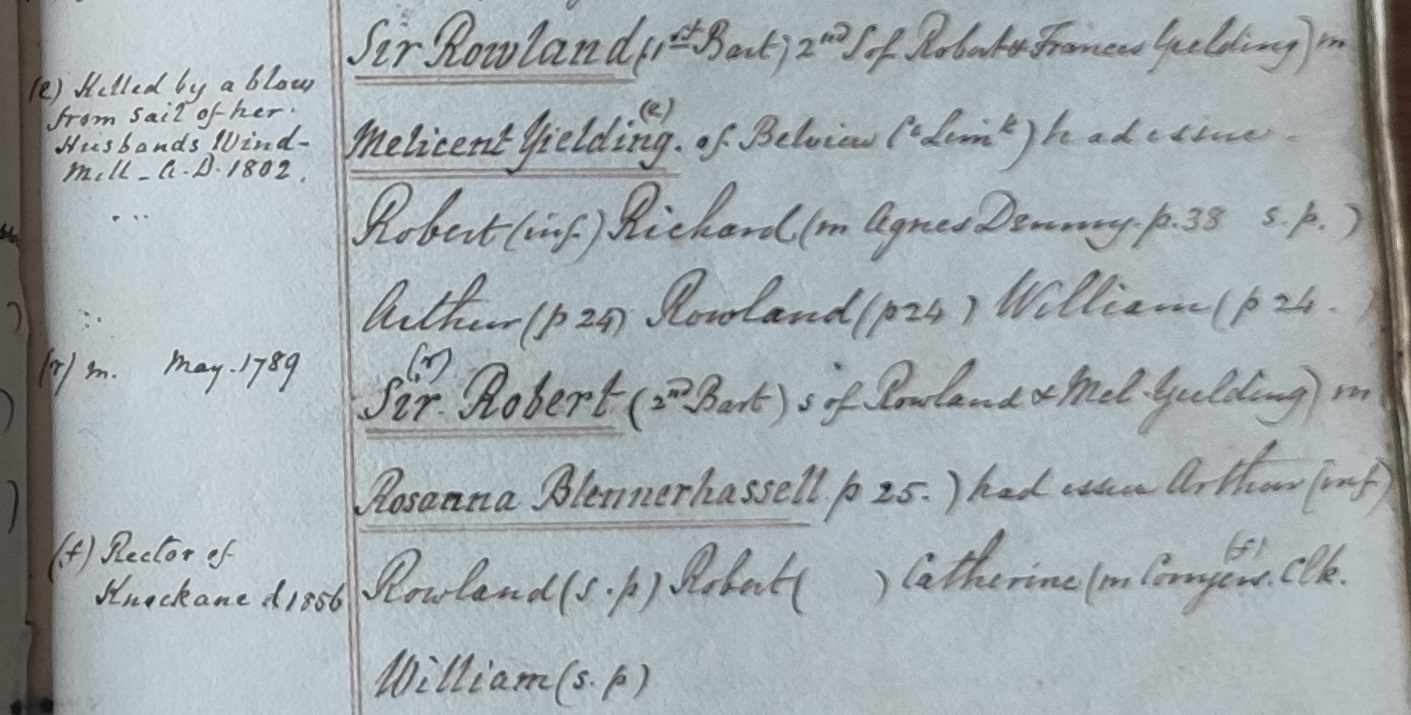 Sir Rowland (1st Bart) 2nd S of Robert & Frances Yielding) m
(e) Killed by a blow
from sail of her
Husbands Wind-
Mill - A.D. 1802.
Melicent Yielding. (e) of Belview (Co Limk) had issue -
Robert (inf.) Richard (m Agnes Denny. p. 38 s.p. )
Arthur (p 24) Rowland (p24 ) William (p 24. )
(r) m. May. 1789
Sir. Robert (r) (2nd Bart) s of Rowland & Mel Yielding) m
Rosanna Blennerhassett p 25. ) had issue Arthur (inf)
(f) Rector of
Knockane d 1856
Rowland (s.p) Robert ( ) Catherine (m Conyers. (f) Clk.
William (s.p)